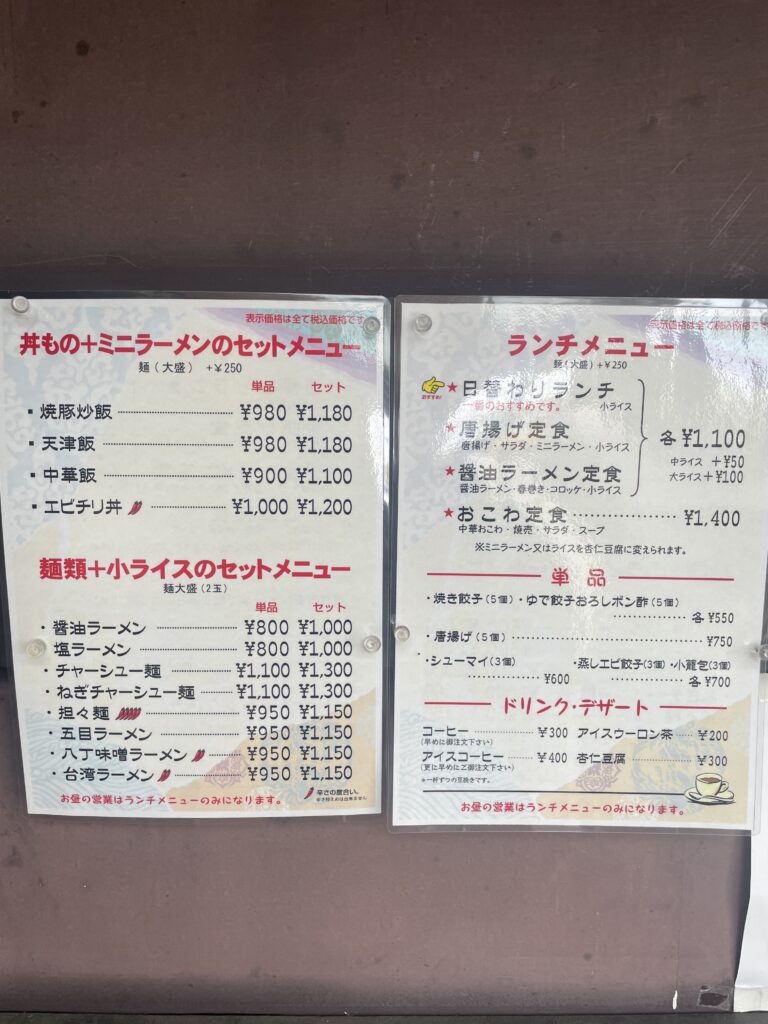 表示価格は全て税込価格です
丼もの+ミニラーメンのセットメニュー
麺(大盛) +¥250
単品 セット
▪焼豚炒飯 ¥980 ¥1,180
▪天津飯 ¥980 ¥1,180
▪中華飯 ¥900 ¥1,100
▪エビチリ丼 ¥1,000 ¥1,200
麺類+小ライスのセットメニュー
麺大盛(2玉)
単品 セット
・醤油ラーメン ¥800 ¥1,000
・塩ラーメン ¥800 ¥1,000
・チャーシュー麺 ¥1,100 ¥1,300
・ねぎチャーシュー麺 ¥1,100 ¥1,300
・担々麺 ¥950 ¥1,150
・五目ラーメン ¥950 ¥1,150
・八丁味噌ラーメン ¥950 ¥1,150
・台湾ラーメン ¥950 ¥1,150
辛さの度合い。
辛さ控えめは出来ません
お昼の営業はランチメニューのみになります。
表示価格は全て税込価格です
ランチメニュー
麺(大盛)+¥250
おすすめ!
★日替わりランチ
一番のおすすめです。 小ライス
★唐揚げ定食
唐揚げ・サラダ・ミニラーメン・小ライス
各¥1,100
中ライス +¥50
大ライス+¥100
★醤油ラーメン定食
醤油ラーメン・春巻き・コロッケ・小ライス
★おこわ定食 ¥1,400
中華おこわ・焼売・サラダ・スープ
※ミニラーメン又はライスを杏仁豆腐に変えられます。
単品
・焼き餃子(5個)・ゆで餃子おろしポン酢(5個)
各¥550
・唐揚げ(5個) ¥750
・シューマイ(3個) ・蒸しエビ餃子(3個)・小籠包(3個)
¥600 各¥700
ドリンク・デザート
コーヒー ¥300 アイスウーロン茶 ¥200
(早めに御注文下さい)
アイスコーヒー ¥400 杏仁豆腐 ¥300
(更に早めにご御注文下さい)
*一杯ずつの豆挽きです。
お昼の営業はランチメニューのみになります。